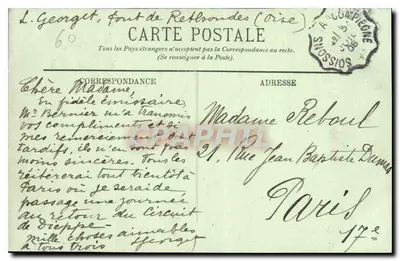 L. Georget, font de Rethondes (Oise)
60
CARTE POSTALE
Tous les Pays étrangers n'acceptent pas la Correspondance au recto.
(Se renseigner à la Poste).
A COMPIEGNE
SOISSONS
CORRESPONDANCE
Chère Madame,
En fidèle émissaire,
Mr Bernier m'a transmis
vos compliments et si
mes remerciements sont
tardifs, ils n'en sont pas
moins sincères. Tous les
réitérerai tout bientôt à
Paris où je serai de
passage une journée
au retour du Circuit
de Dieppe.
Mille choses aimables
à tous trois
Georget
ADRESSE
Madame Reboul
21, Rue Jean Baptiste Dumas
Paris
17e